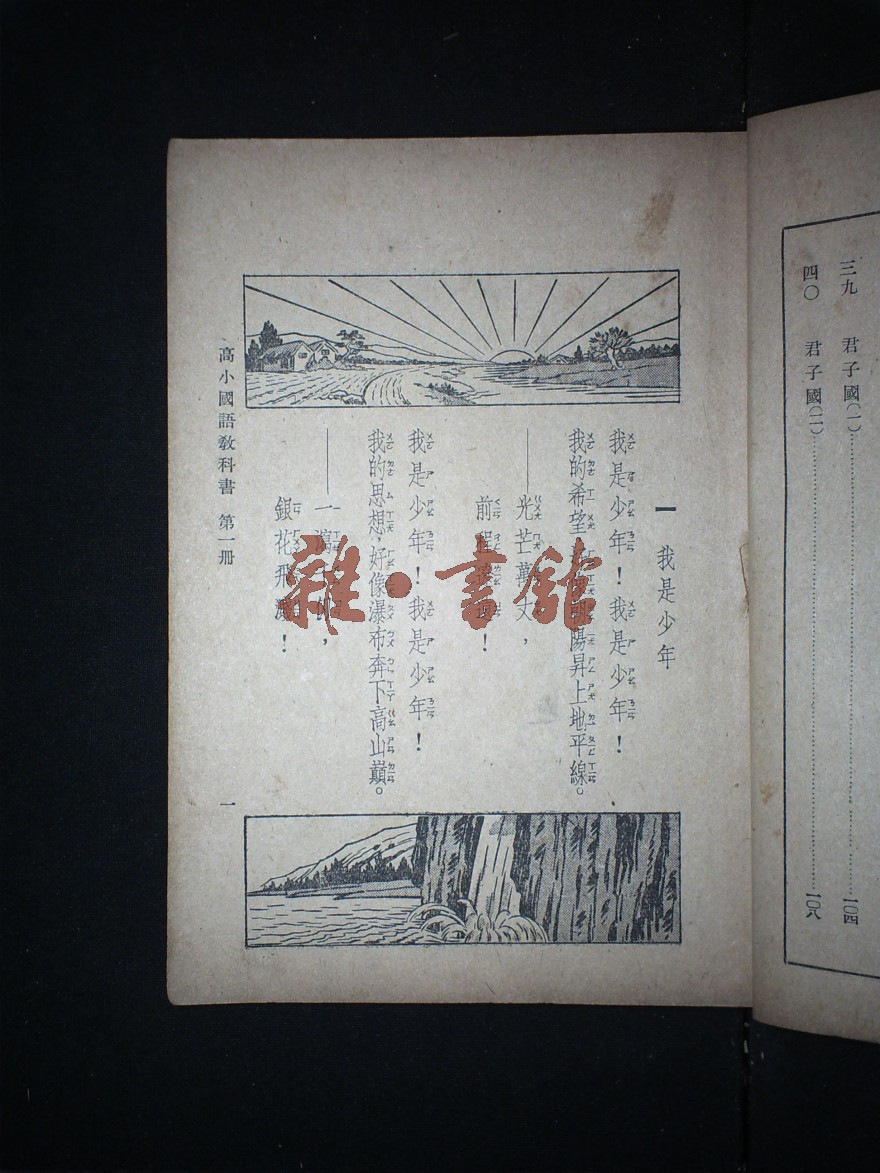 三九 君子國(一)……一〇四
四〇 君子國(二)……一〇八
一 我是少年
我是少年！我是少年！
我的希望，朝陽昇上地平線。
——光芒萬丈，
前程！
我是少年！我是少年！
我的思想，好像瀑布奔下高山巔。
——一瀉，
銀花飛濺！
高小國語教科書 第一册
一
雜·書館